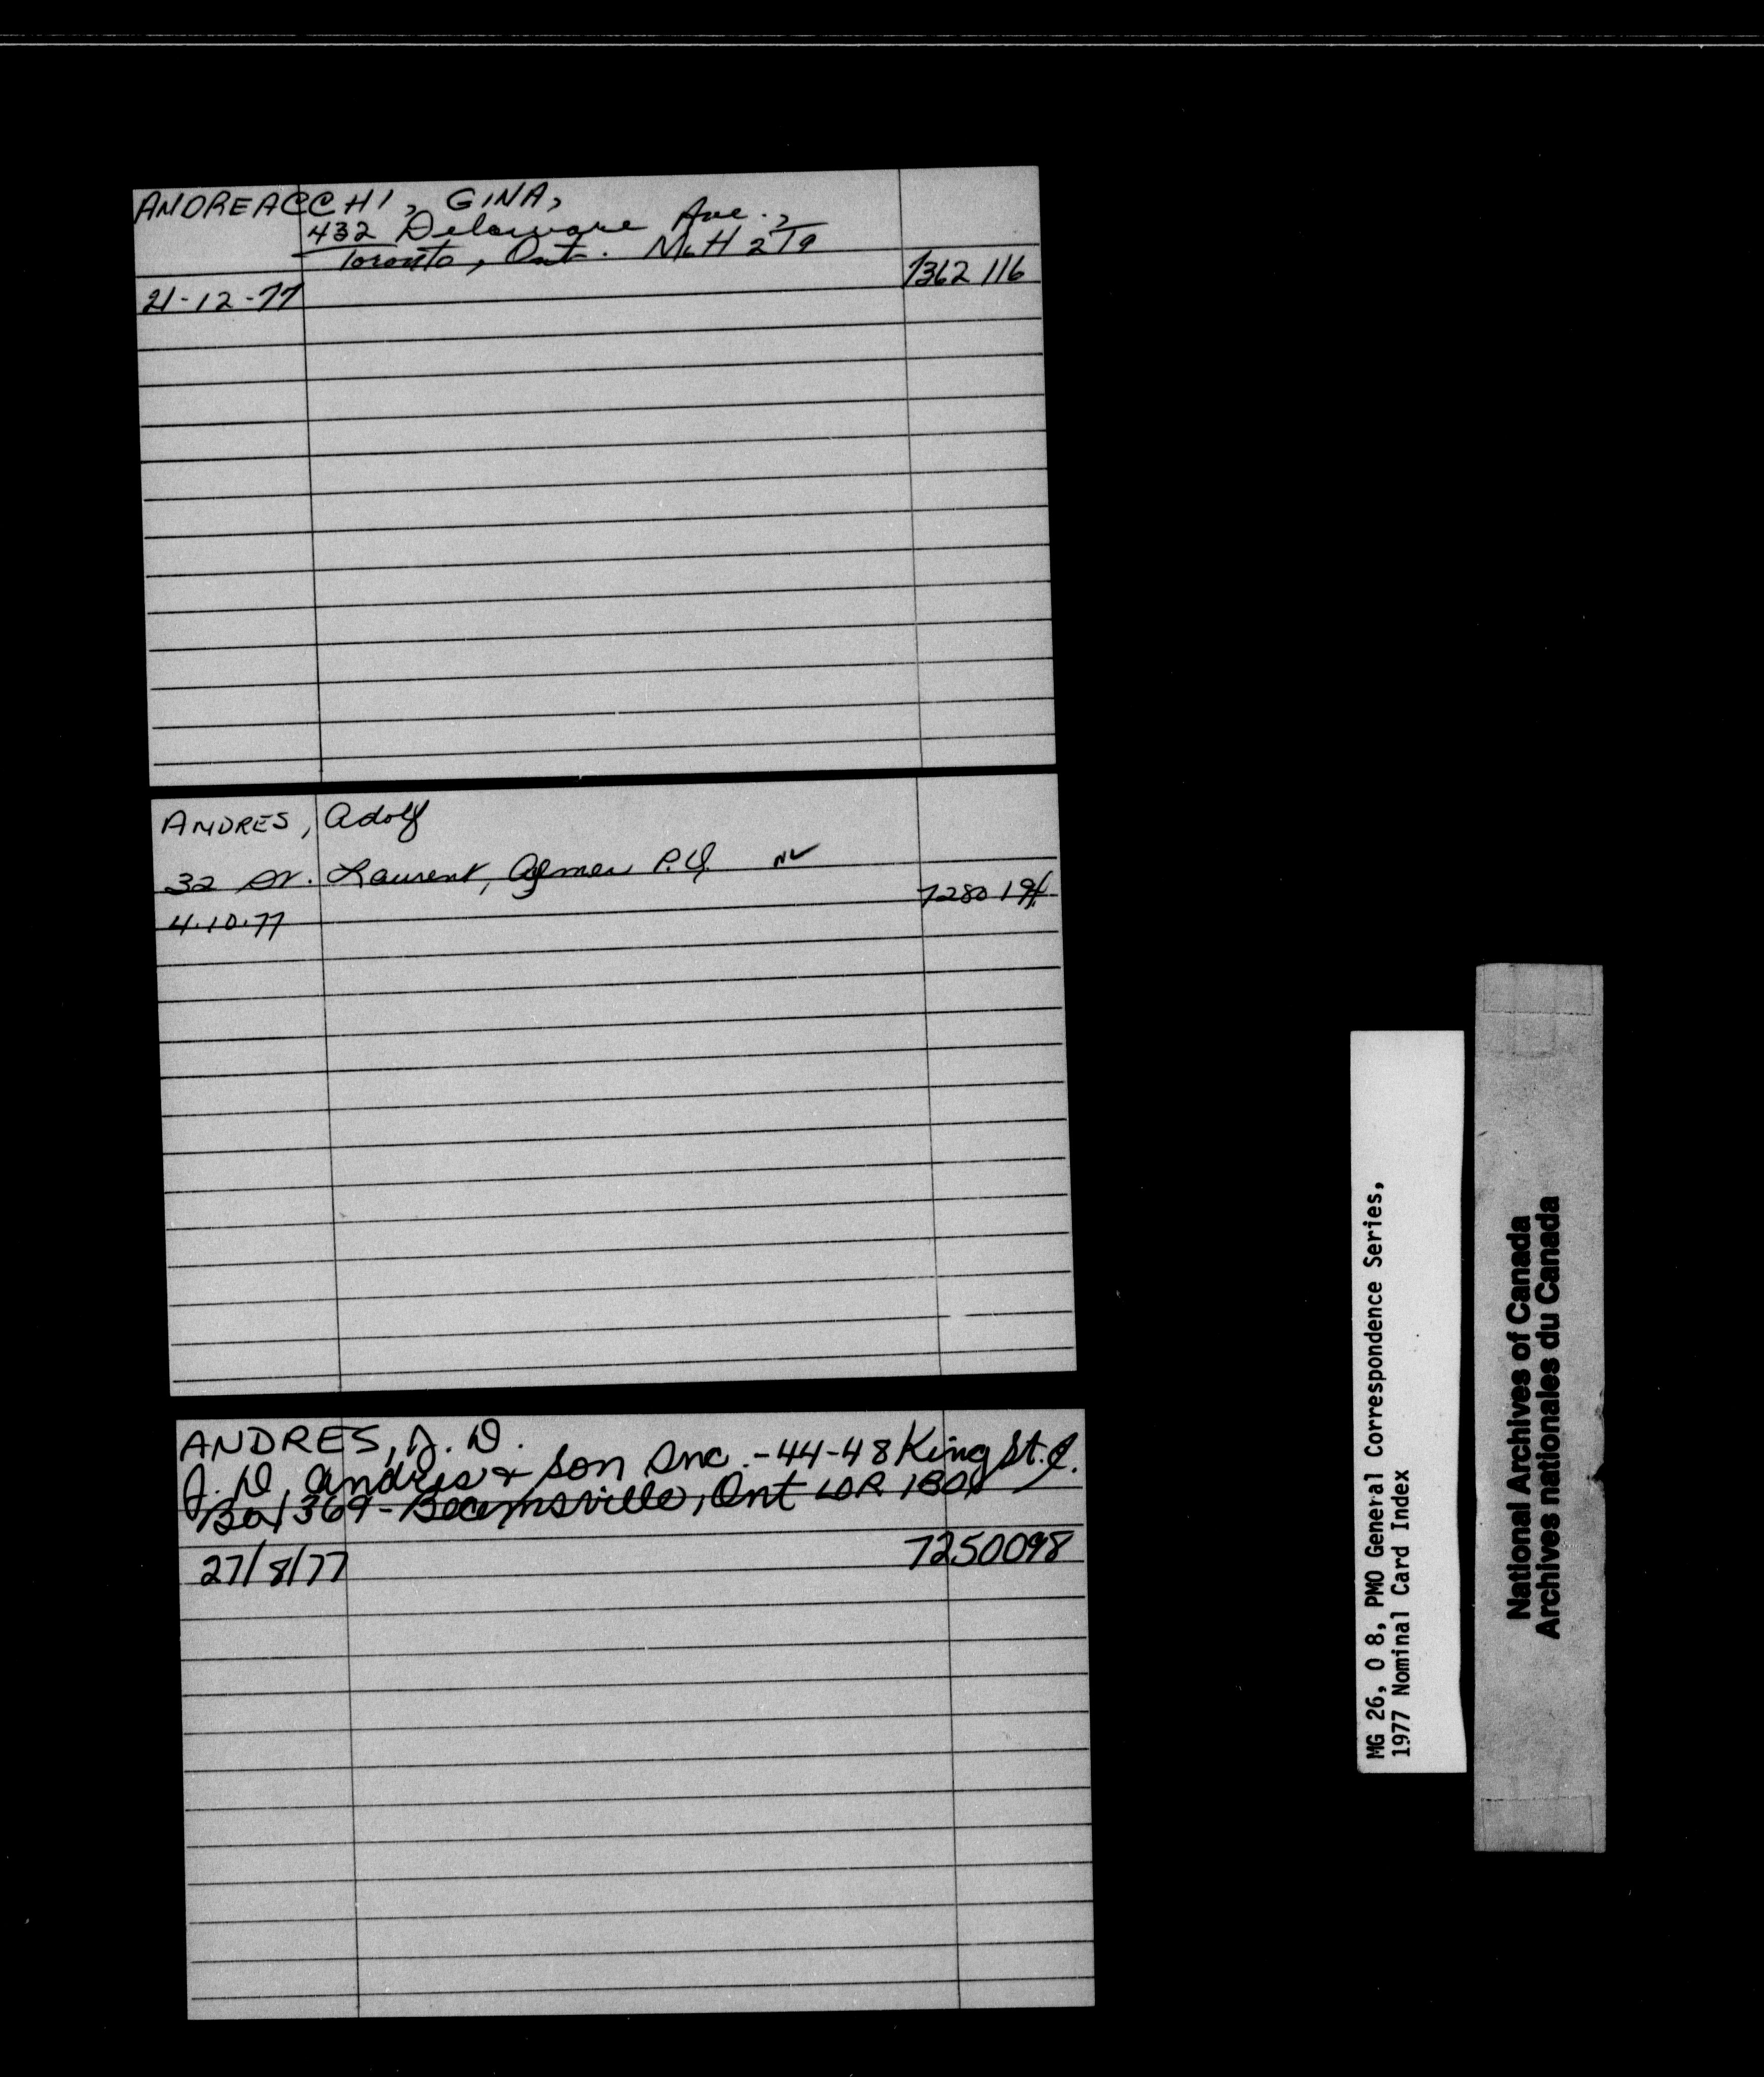 ANDREACCHI, GINA,
432 Delaware Ave.,
Toronto, Ont. M6H 2T9
21-12-77 7362 116
ANDRES, Adolf
32 St. Laurent, Aylmer P.Q.
4.10.77 7280 194
ANDRES, J. D.
J. D. Andres & Son Inc. - 44-48 King St. E.
Box 369 - Beamsville, Ont L0R 1B0
27/8/77 7250098
MG 26, O 8, PMO General Correspondence Series,
1977 Nominal Card Index
National Archives of Canada
Archives nationales du Canada